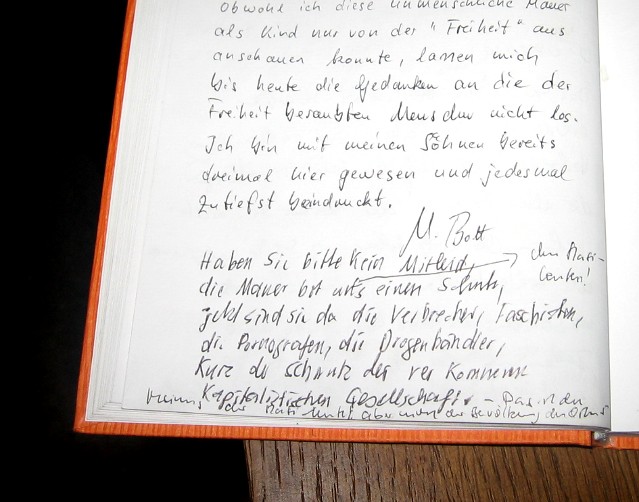 Obwohl ich diese unmenschliche Mauer
als Kind nur von der "Freiheit" aus
anschauen konnte, lassen mich
bis heute die Gedanken an die der
Freiheit beraubten Menschen nicht los.
Ich bin mit meinen Söhnen bereits
dreimal hier gewesen und jedesmal
zutiefst beeindruckt.
M. Bott
Haben Sie bitte kein Mitleid,
die Mauer bot uns einen Schutz,
jetzt sind sie da die Verbrecher, Faschisten,
die Pornografen, die Drogenhändler,
Kurz der Schmutz der verkommene
Kapitalistischen Gesellschaft. - Das ist der
der aber der Bevölkerung